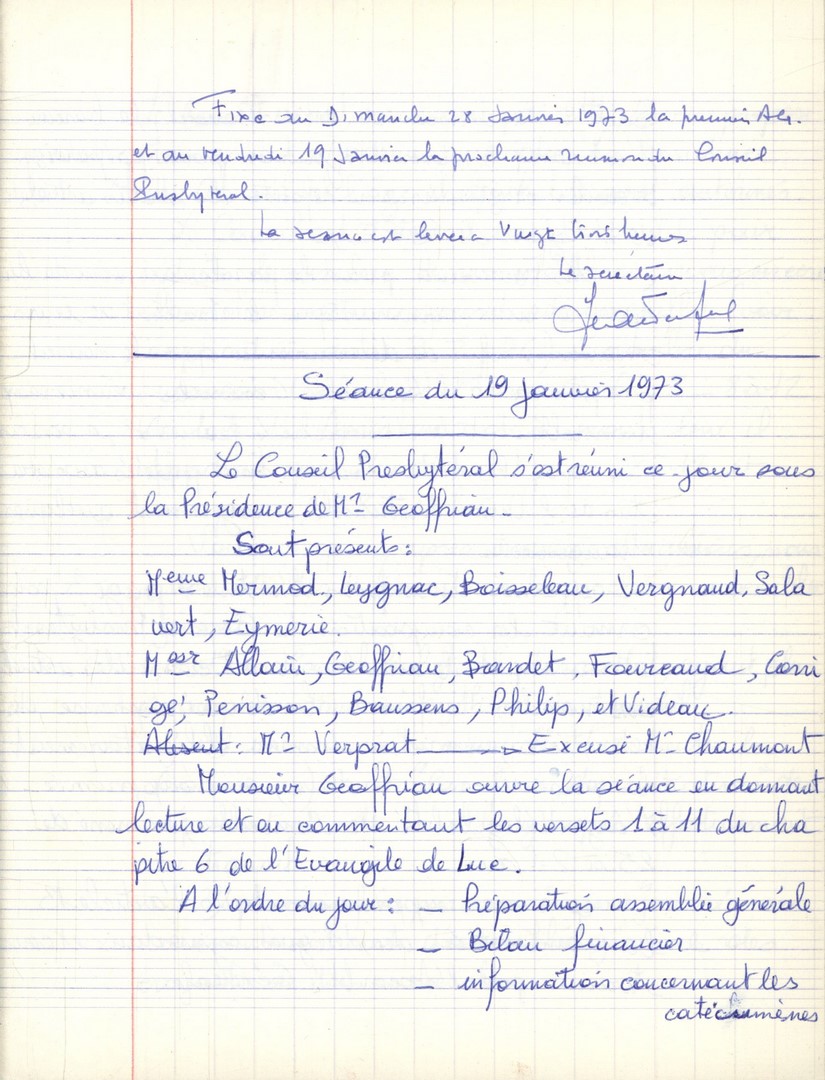 Fixe au Dimanche 28 Janvier 1973 la première AG.
et au vendredi 19 Janvier la prochaine reunion du Conseil
Presbyteral.
La seance est levee a Vingt trois heures
Le secretaire
Séance du 19 Janvier 1973
Le Conseil Presbytéral s'est réuni ce jour sous
la Présidence de Mr Geoffriau.
Sont présents :
Meme Mermod, Leygnac, Boisseleau, Vergnaud, Sala
vert, Eymerie.
Messr Allain, Geoffriau, Bardet, Foureaud, Corri
gé, Penisson, Baussens, Philip, et Videau.
Absent : Mr Verprat Excusé Mr Chaumont
Monsieur Geoffriau ouvre la séance en donnant
lecture et en commentant les versets 1 à 11 du cha
pitre 6 de l'Evangile de Luc.
A l'ordre du jour : – Préparation assemblée générale
– Bilan financier
– information concernant les
catéchumènes